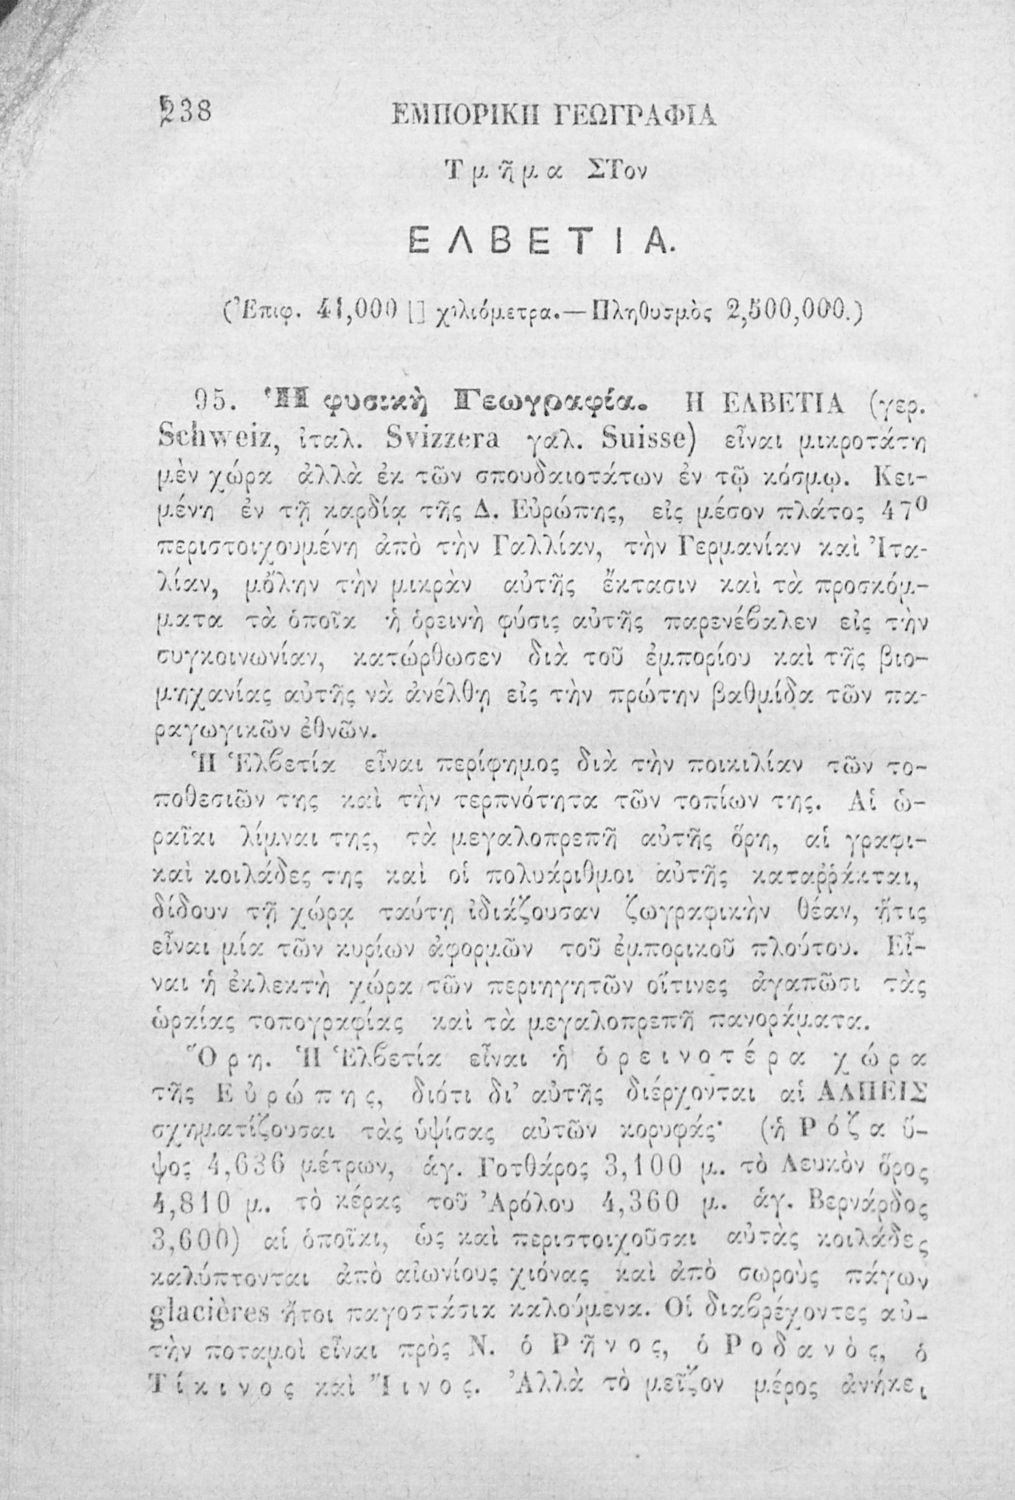 238 ΕΜΠΟΡΙΚΗ ΓΕΩΓΡΑΦΙΑ
Τμῆμα ΣΤον
ΕΛΒΕΤΙΑ.
(Ἐπιφ. 41,000 [] χιλιόμετρα.— Πληθυσμὸς 2,500,000.)
95. Ἡ φυσικὴ Γεωγραφία. Η ΕΛΒΕΤΙΑ (γερ.
Schweiz, ἰταλ. Svizzera γαλ. Suisse) εἶναι μικροτάτη
μὲν χώρα ἀλλὰ ἐκ τῶν σπουδαιοτάτων ἐν τῷ κόσμῳ. Κει-
μένη ἐν τῇ καρδίᾳ τῆς Δ. Εὐρώπης, εἰς μέσον πλάτος 47⁰
περιστοιχουμένη ἀπὸ τὴν Γαλλίαν, τὴν Γερμανίαν καὶ Ἰτα-
λίαν, μὅλην τὴν μικρὰν αὐτῆς ἔκτασιν καὶ τὰ προσκόμ-
ματα τὰ ὁποῖα ἡ ὀρεινὴ φύσις αὐτῆς παρενέβαλεν εἰς τὴν
συγκοινωνίαν, κατώρθωσεν διὰ τοῦ ἐμπορίου καὶ τῆς βιο-
μηχανίας αὐτῆς νὰ ἀνέλθῃ εἰς τὴν πρώτην βαθμίδα τῶν πα-
ραγωγικῶν ἐθνῶν.
Ἡ Ἑλβετία εἶναι περίφημος διὰ τὴν ποικιλίαν τῶν το-
ποθεσιῶν της καὶ τὴν τερπνότητα τῶν τοπίων της. Αἱ ὡ-
ραῖαι λίμναι της, τὰ μεγαλοπρεπῆ αὐτῆς ὄρη, αἱ γραφι-
καὶ κοιλάδες της καὶ οἱ πολυάριθμοι αὐτῆς καταῤῥάκται,
δίδουν τῇ χώρᾳ ταύτῃ ἰδιάζουσαν ζωγραφικὴν θέαν, ἥτις
εἶναι μία τῶν κυρίων ἀφορμῶν τοῦ ἐμπορικοῦ πλούτου. Εἶ-
ναι ἡ ἐκλεκτὴ χώρα τῶν περιηγητῶν οἵτινες ἀγαπῶσι τὰς
ὡραίας τοπογραφίας καὶ τὰ μεγαλοπρεπῆ πανοράματα.
Ὄρη. Ἡ Ἑλβετία εἶναι ἡ ὀρεινοτέρα χώρα
τῆς Εὐρώπης, διότι δι' αὐτῆς διέρχονται αἱ ΑΛΠΕΙΣ
σχηματίζουσαι τὰς ὑψίσας αὐτῶν κορυφάς· (ἡ Ρόζα ὕ-
ψος 4,636 μέτρων, ἁγ. Γοτθάρος 3,100 μ. τὸ Λευκὸν ὄρος
4,810 μ. τὸ κέρας τοῦ Ἀρόλου 4,360 μ. ἁγ. Βερνάρδος
3,600) αἱ ὁποῖαι, ὡς καὶ περιστοιχοῦσαι αὐτὰς κοιλάδες
καλύπτονται ἀπὸ αἰωνίους χιόνας καὶ ἀπὸ σωροὺς πάγων
glacières ἤτοι παγοστάσια καλούμενα. Οἱ διαβρέχοντες αὐ-
τὴν ποταμοὶ εἶναι πρὸς Ν. ὁ Ρῆνος, ὁ Ροδανὸς, ὁ
Τίκινος καὶ Ἴινος. Ἀλλὰ τὸ μεῖζον μέρος ἀνήκει